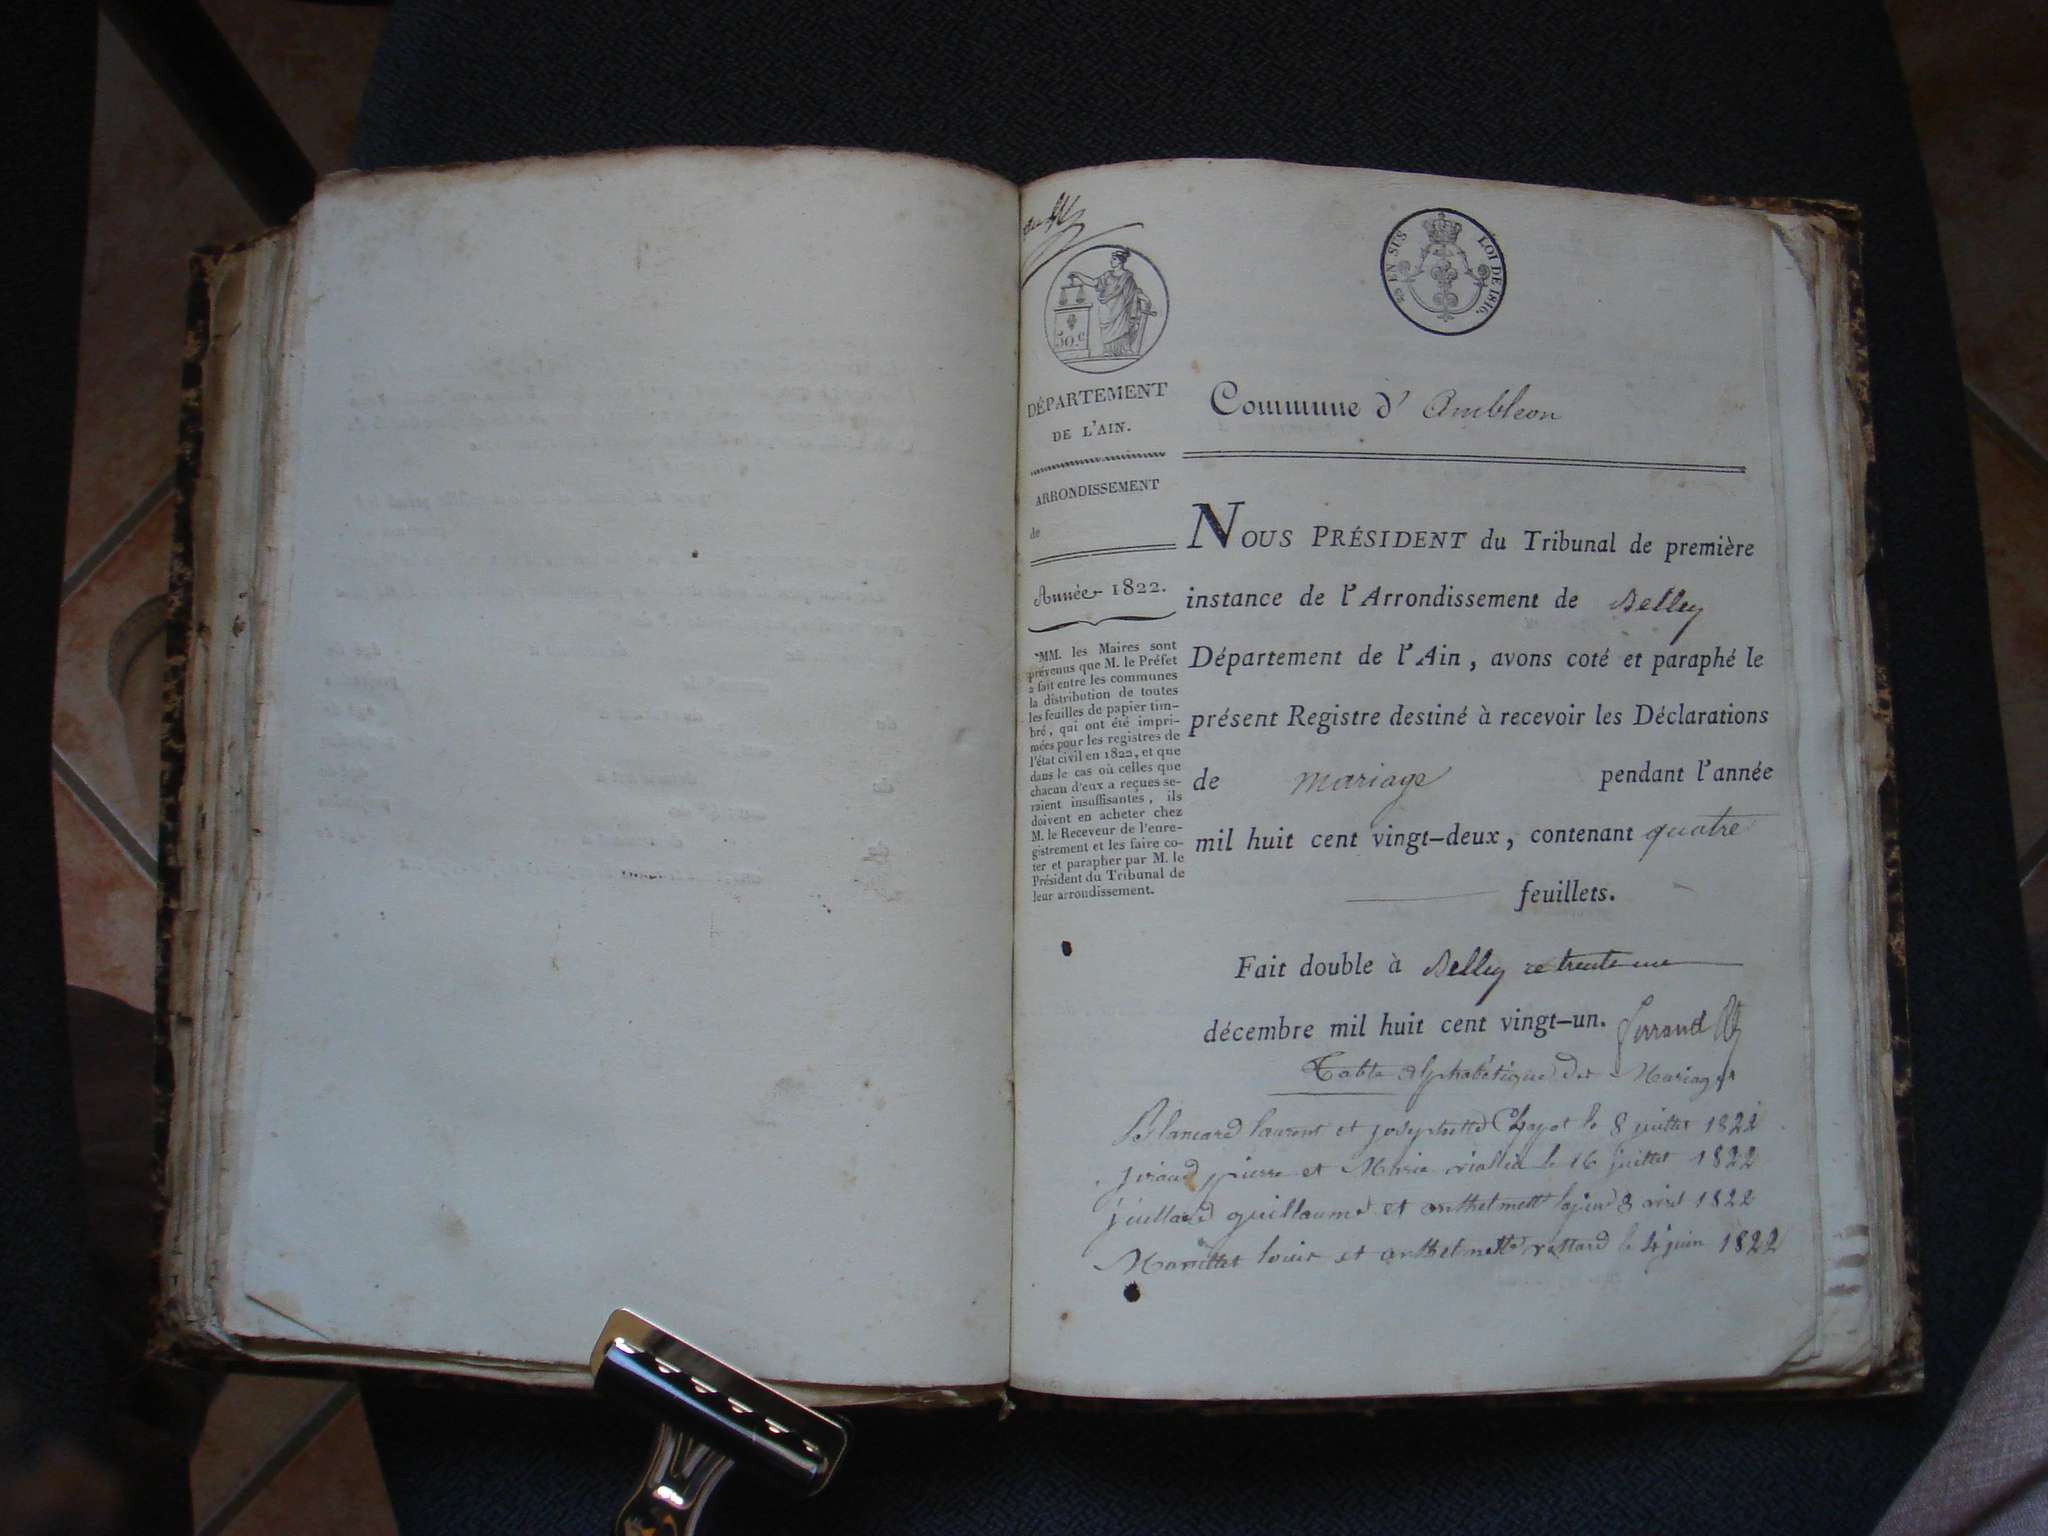 50.c
EN SUS LOI DE 1816.
DÉPARTEMENT
DE L'AIN.
ARRONDISSEMENT
de
Année 1822.
MM. les Maires sont
prévenus que M. le Préfet
a fait entre les communes
la distribution de toutes
les feuilles de papier tim-
bré, qui ont été impri-
mées pour les registres de
l'état civil en 1822, et que
dans le cas où celles que
chacun d'eux a reçues se-
raient insuffisantes, ils
doivent en acheter chez
M. le Receveur de l'enre-
gistrement et les faire co-
ter et parapher par M. le
Président du Tribunal de
leur arrondissement.
Commune d' Ambleon
NOUS PRÉSIDENT du Tribunal de première
instance de l'Arrondissement de Belley
Département de l'Ain, avons coté et paraphé le
présent Registre destiné à recevoir les Déclarations
de mariage pendant l'année
mil huit cent vingt-deux, contenant quatre
feuillets.
Fait double à Belley ce trente une
décembre mil huit cent vingt-un. Ferrand
Table alphabétique des Mariages
Blancard laurent et josephette le 8 juillet 1822
pierre et Marie le 16 juillet 1822
guillaume et anthelmette 1822
louis et anthelmette le 4 juin 1822